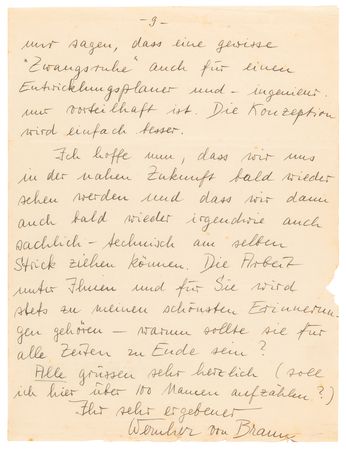 - 9 -
nur sagen, dass eine gewisse
"Zwangsruhe" auch für einen
Entwicklungsplaner und - ingenieur
nur vorteilhaft ist. Die Konzeption
wird einfach besser.
Ich hoffe nun, dass wir uns
in der nahen Zukunft bald wieder
sehen werden und dass wir dann
auch bald wieder irgendwie auch
sachlich - technisch am selben
Strick ziehen können. Die Arbeit
unter Ihnen und für Sie wird
stets zu meinen schönsten Erinnerun-
gen gehören - warum sollte sie für
alle Zeiten zu Ende sein?
Alle grüssen sehr herzlich (soll
ich hier über 100 Namen aufzählen?)
Ihr sehr ergebener
Wernher von Braun